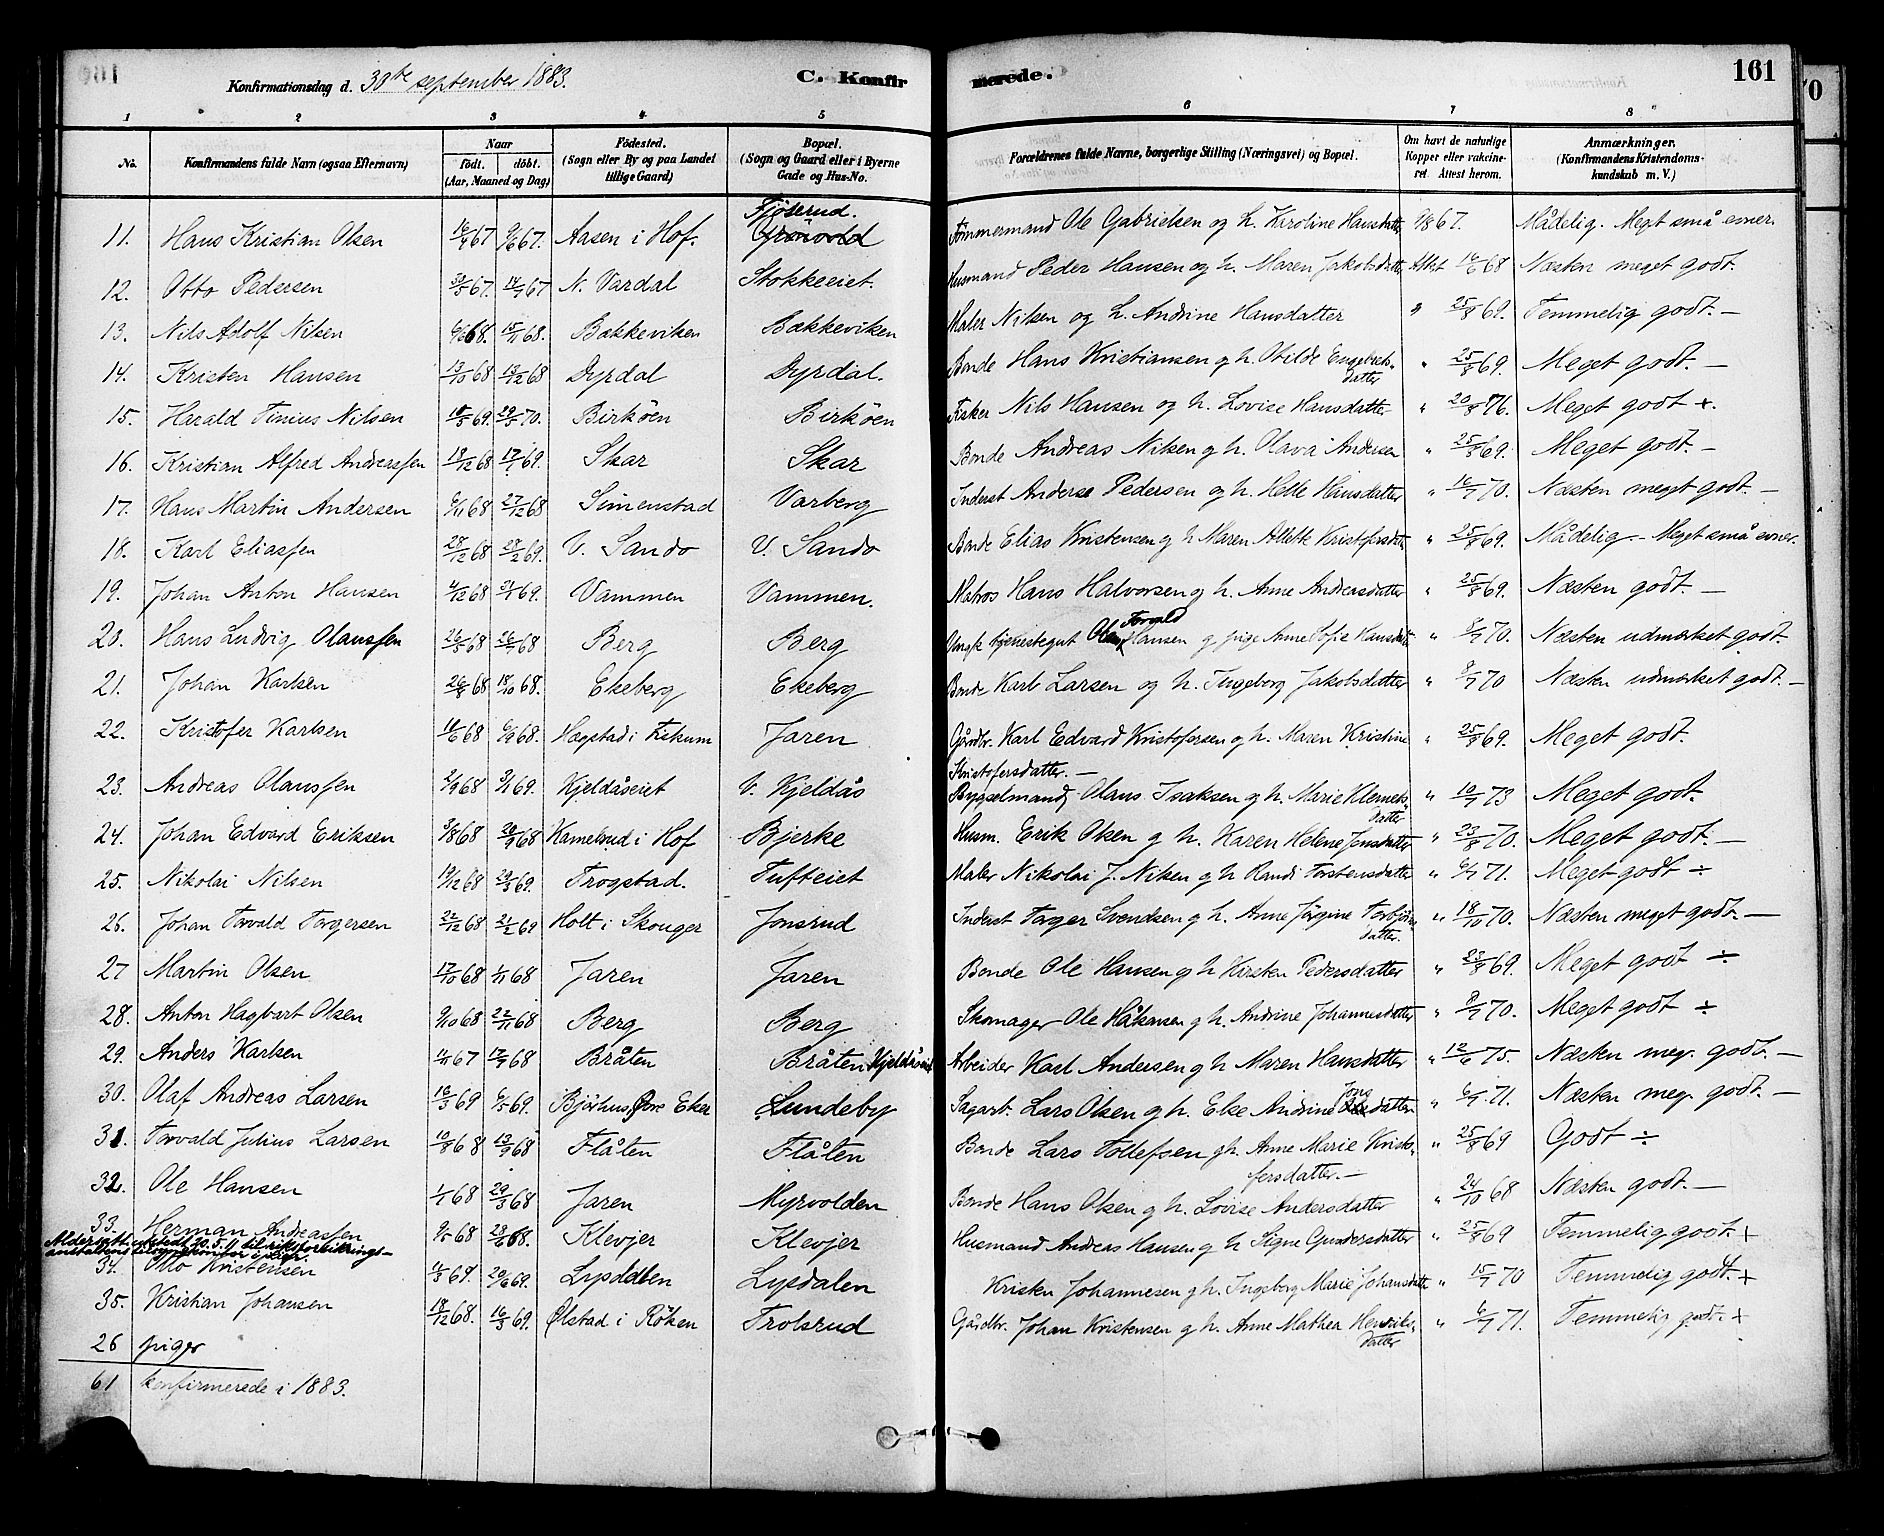 161
Konfirmationsdag d. 30te september 1883.
C. Konfirmerede.
1 2 3 4 5 6 7 8
No. Konfirmandens fulde Navn (ogsaa Efternavn) Naar født. døbt. (Aar, Maaned og Dag) Fødested. (Sogn eller By og paa Landet tillige Gaard) Bopæl. (Sogn og Gaard eller i Byerne Gade og Hus-No. Forældrenes fulde Navne, borgerlige Stilling (Næringsvei) og Bopæl. Om havt de naturlige Kopper eller vaccineret. Attest herom. Anmærkninger. (Konfirmandens Kristendomskundskab m. V.)
11. Hans Kristian Olsen 16/4 67 9/6 67. Aasen i Hof. Fjøserud. Tømmermand Ole Gabrielsen og h. Karoline Hansdatter 9/8 67. Mådelig. Meget små evner.
12. Otto Pedersen 30/5 67. 14/7 67 N. Vardal Stokkeeiet. Husmand Peder Hansen og h. Maren Jakobsdatter Attst 16/6 68 Næsten meget godt.
13. Nils Adolf Nilsen 6/6 68. 15/11 68. Bakkeviken Bakkeviken Maler Nilsen og h. Andrine Hansdatter " 25/8 69. Temmelig godt. —
14. Kristen Hansen 13/10 68 13/12 68 Dyrdal Dyrdal. Bonde Hans Kristiansen og h. Otilde Engebretsdatter " 25/8 69. Meget godt. —
15. Harald Tinius Nilsen 18/5 69. 29/5 70. Birkøen Birkøen Fisker Nils Hansen og h. Lovise Hansdatter " 20/8 76. Meget godt +.
16. Kristian Alfred Andreassen 18/12 68 17/1 69. Skar Skar Bonde Andreas Nilsen og h. Olava Andersen " 25/8 69. Meget godt. —
17. Hans Martin Andersen 6/11 68 27/12 68 Simenstad Varberg Inderst Anders Pedersen og h. Helle Hansdatter " 16/7 70. Næsten meget godt. —
18. Karl Eliassen 28/12 68 28/2 69. V. Sando V. Sando Bonde Elias Kristensen og h Maren Alette Kristofersdatter " 25/8 69. Mådelig - Meget små evner.
19. Johan Anton Hansen 4/12 68 24/1 69. Vammen Vammen. Matros Hans Halvorsen og h. Anne Andreasdatter " 25/8 69. Næsten godt. —
20. Hans Ludvig Olaussen 26/5 68 26/7 68 Berg Berg Ungk. tjenestegut Olaus Torvald Hansen og pige Anne Sofie Hansdatter " 8/7 70. Næsten udmærket godt.
21. Johan Karlsen 26/8 68 18/10 68. Ekeberg Ekeberg Bonde Karl Larsen og h. Ingeborg Jakobsdatter " 8/7 70 Næsten udmærket godt. —
22. Kristofer Karlsen 11/6 68 6/9 68. Hægstad i Fiskum Jaren Gårdbr. Karl Edvard Kristofersen og h. Maren Kristine Kristofersdatter. — " 25/8 69. Meget godt.
23. Andreas Olaussen 2/9 68 3/1 69. Kjeldåseiet V. Kjeldås Bygselmand Olaus Isaksen og h. Marie Klemetsdatter " 10/7 73 Meget godt.
24. Johan Edvard Eriksen 3/8 68 20/9 68 Hamelsrud i Hof Bjerke Husm. Erik Olsen og h. Karen Helene Jensdatter " 23/8 70. Meget godt. —
25. Nikolai Nilsen 19/12 68 29/3 69. Trogstad. Tufteiet Maler Nikolai J. Nilsen og h Randi Torstensdatter " 6/7 71. Meget godt ÷
26. Johan Torvald Torgersen 22/12 68 21/2 69 Holt i Skouger Jonsrud Inderst Torger Svendsen og h. Anne Jörgine Torbjörnsdatter. " 18/10 70. Næsten meget godt. —
27 Martin Olsen 17/10 68 1/11 68 Jaren Jaren Bonde Ole Hansen og h Kirsten Pedersdatter " 25/8 69. Meget godt ÷
28. Anton Hagbart Olsen 9/10 68 22/11 68 Berg Berg Skomager Ole Håkansen og h. Andrine Johannesdatter " 8/7 70. Meget godt ÷
29. Anders Karlsen 67 12/7 68 Bråten Bråten Kjeldåseiet Arbeider Karl Andersen og h Maren Hansdatter " 12/6 75. Næsten meg. godt. —
30. Olaf Andreas Larsen 16/3 69 6/5 69. Bjørhus, Øvre Eker Lundeby Sagarb. Lars Olsen og h. Else Andrine datter " 6/7 71. Næsten meg. godt. —
31. Torvald Julius Larsen 10/8 68 13/9 68 Flåten Flåten Bonde Lars Tollefsen og h. Anne Marie Kristofersdatter. — " 25/8 69 Godt ÷
32. Ole Hansen 1/1 68 29/3 68 Jaren Myrvolden Bonde Hans Olsen og h. Lovise Andersdatter " 24/10 68 Næsten godt. —
33. Herman Andreassen 9/5 68 28/6 68. Klevjer Klevjer Husmand Andreas Hansen og h Signe Gundersdatter " 25/8 69 Temmelig godt. +
Aldersatt. utstedt 20.5.11 til riksforsikrings-
anstaltens
34. Otto Kristensen 11/3 69. 20/6 69. Lysdalen Lysdalen Kristen Johannesen og h. Ingeborg Marie Johansdatter " 15/7 70 Temmelig godt. +
35. Kristian Johansen 18/12 68. 16/3 69. Ølstad i Röken Trolsrud Gårdbr. Johan Kristensen og h. Anne Mathea Henriksdatter " 6/7 71. Temmelig godt. +
26 piger
61 konfirmerede i 1883.